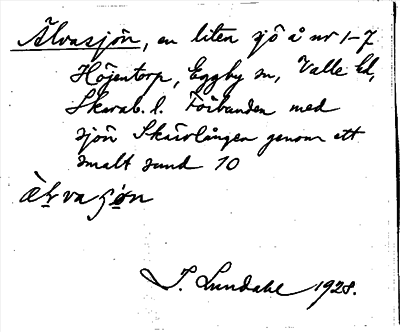 Älvasjön, en liten sjö å nr 1-7
Höjentorp, Eggby sn, Valle hd,
Skarab. l. Förbunden med
sjön Skärvlången genom ett
smalt sund 10
J. Lundahl 1928.